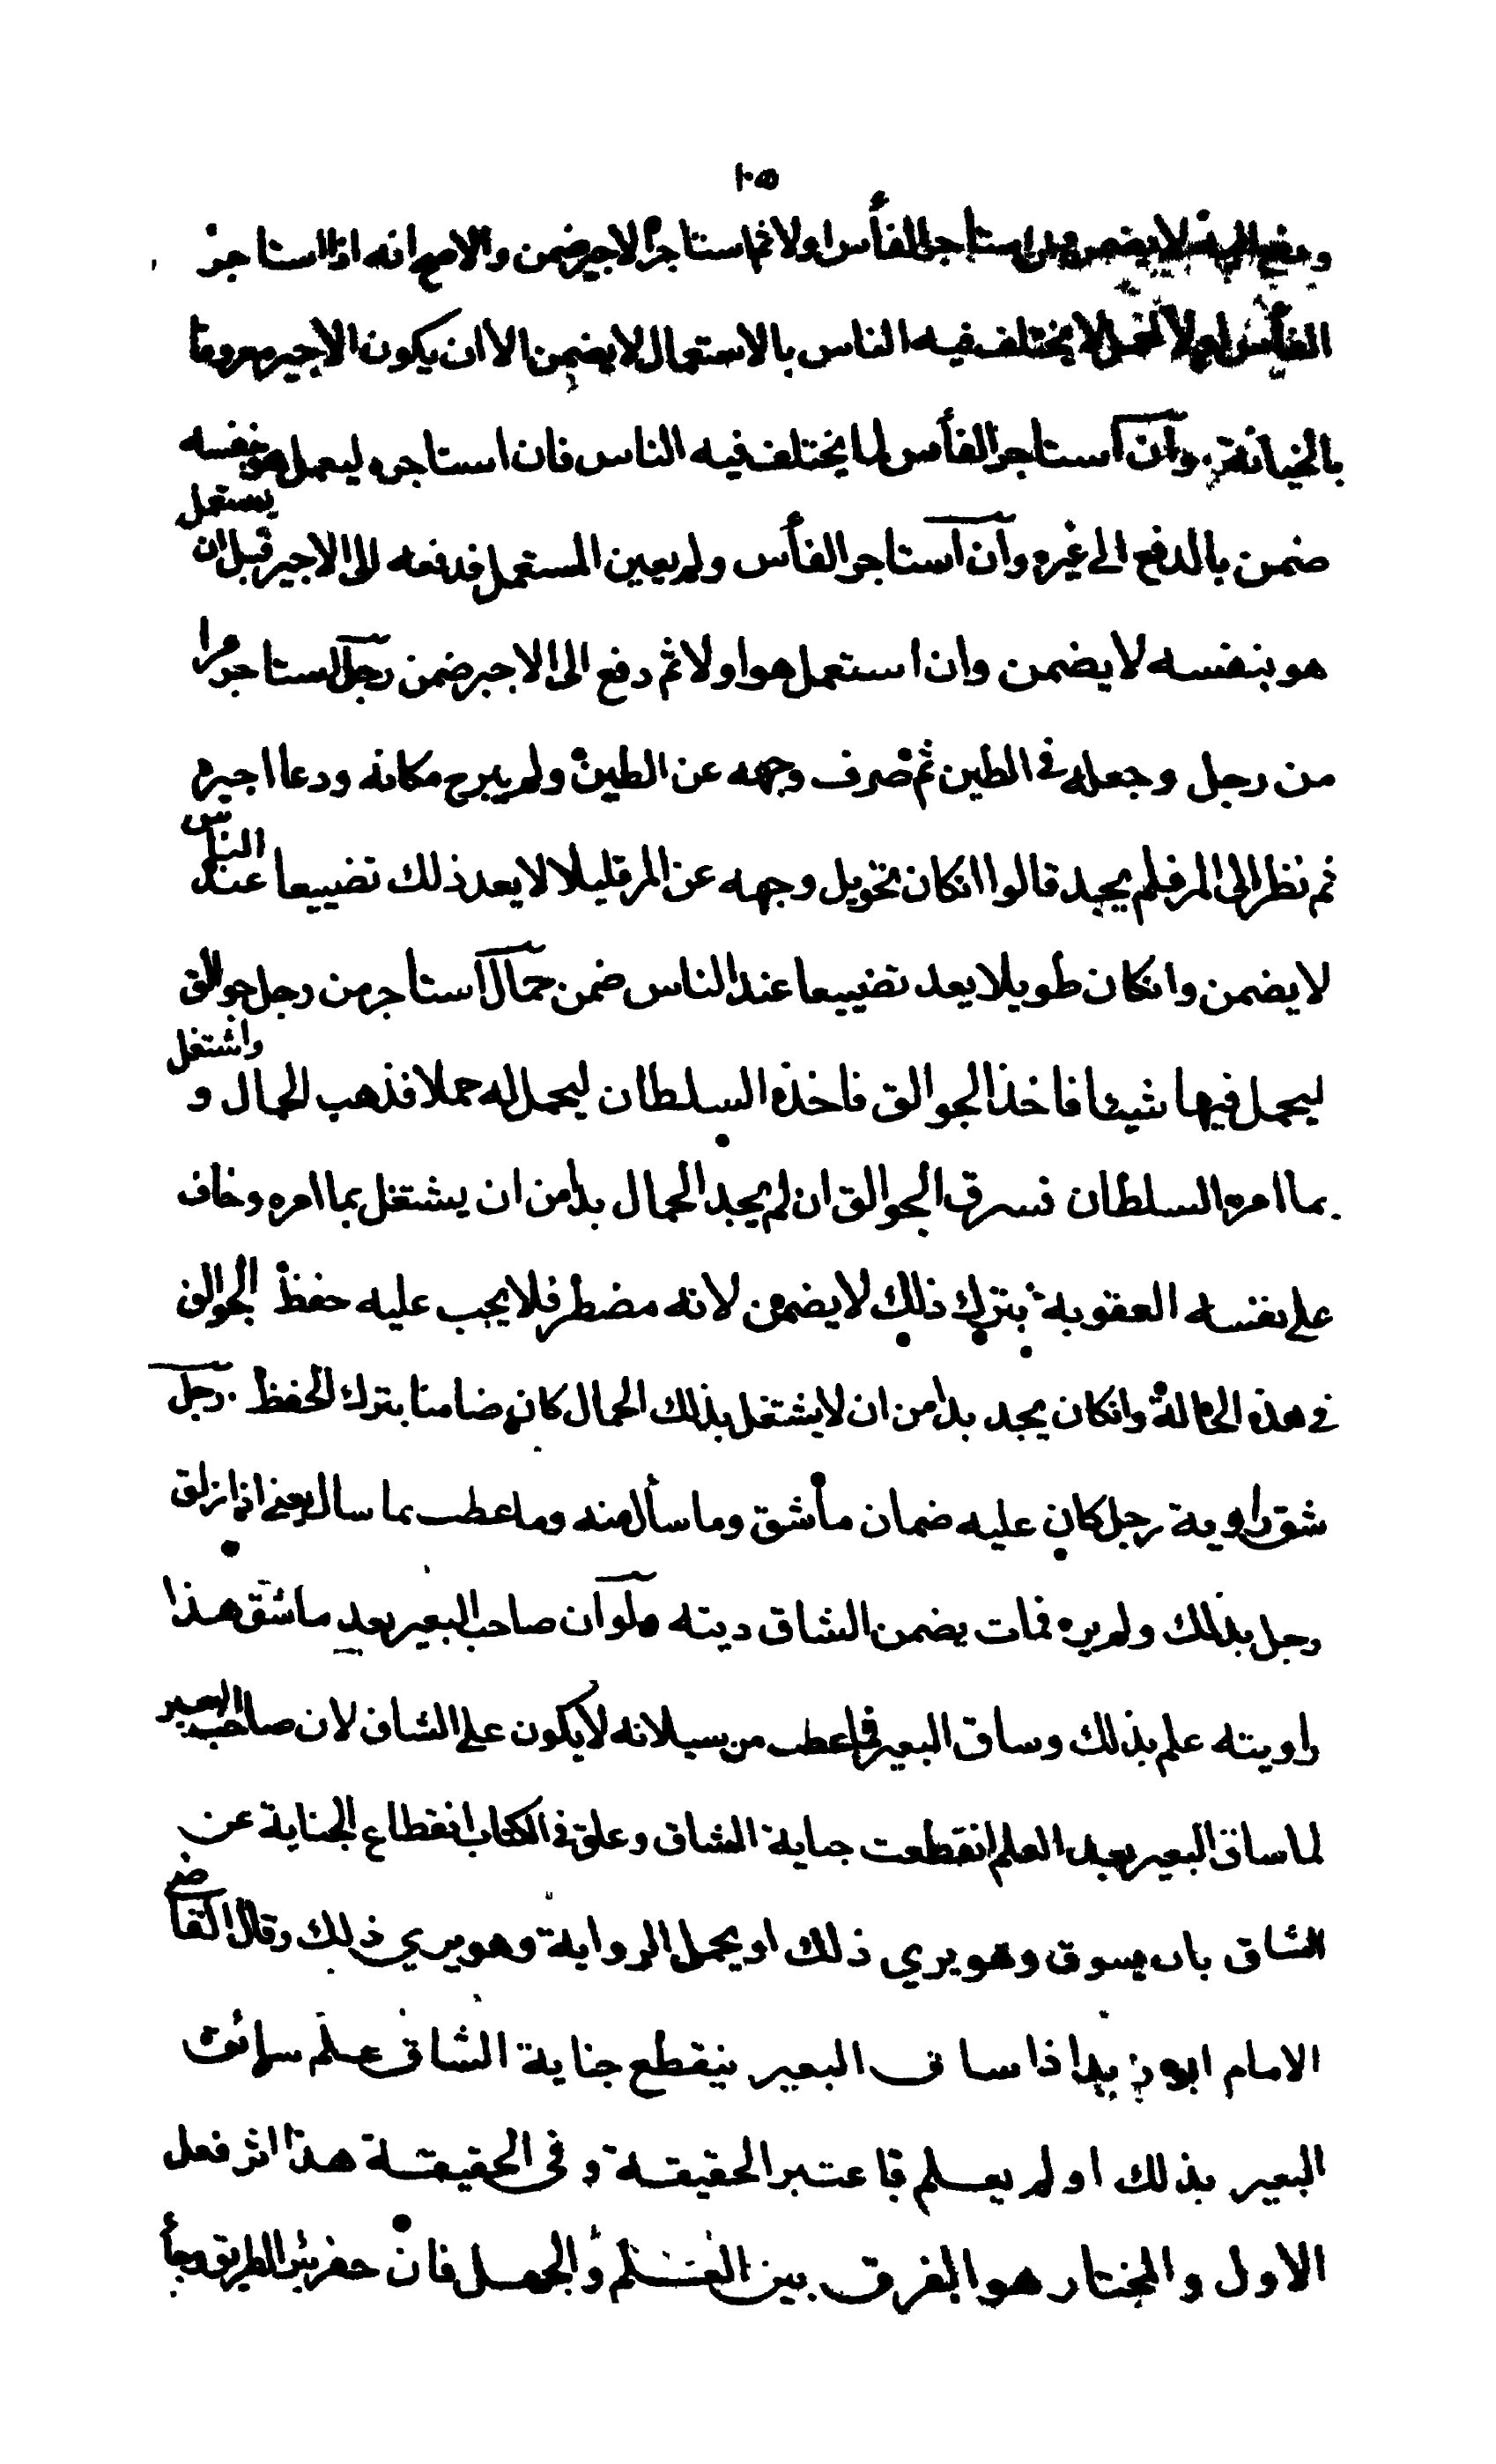 ١٠٥
ودفع اليه لا يضمن وان استاجر الفأس اولا ثم استاجر الاجير ضمن والاصح انه اذا استاجر
الفأس اولا لعمل لا يختلف فيه الناس بالاستعمال لا يضمن الا ان يكون الاجير معروفا
بالخيانة وان استاجر الفأس لما يختلف فيه الناس فان استاجره ليعمل هو بنفسه
ضمن بالدفع الى غيره وان استاجر الفأس ولم يعين المستعمل فدفعه الى الاجير قبل ان يستعمل
هو بنفسه لا يضمن وان استعمل هو اولا ثم دفع الى الاجير ضمن رجل استاجر مرا
من رجل وجعله فى الطين ثم صرف وجهه عن الطين ولم يبرح مكانه ودعا اجيره
ثم نظر الى المر فلم يجد قالوا انكان تحويل وجهه عن المر قليلا لا يعد ذلك تضييعا عند الناس
لا يضمن وانكان طويلا يعد تضييعا عند الناس ضمن حمال استاجر من رجل جوالق
ليحمل فيها شيئا فاخذ الجوالق فاخذه السلطان ليحمل له حملا فذهب الحمال و واشتغل
بما امره السلطان فسرق الجوالق ان لم يجد الحمال بدا من ان يشتغل بما امره وخاف
على نفسه العقوبة بترك ذلك لا يضمن لانه مضطر فلا يجب عليه حفظ الجوالق
فى هذه الحالة وانكان يجد بدا من ان لا يشتغل بذلك الحمال كان ضامنا بترك الحفظ . رجل
شق راوية رجل كان عليه ضمان ما شق وما سأل منه وما عطب بما سال يعنى اذا زلق
رجل بذلك ولم يره فمات يضمن الشاق ديته ولو ان صاحب البعير بعد ما شق هذا
راويته علم بذلك وساق البعير فما عطب من سيلانه لا يكون على الشاق لان صاحب البعير
لما ساق البعير بعد العلم انقطعت جناية الشاق وعلق فى الكتاب انقطاع الجناية عن
الشاق بان يسوق وهو يرى ذلك او يحمل الرواية وهو يرى ذلك وقال القاضى
الامام ابو زيد اذا ساق البعير ينقطع جناية الشاق علم سائق
البعير بذلك او لم يعلم فاعتبر الحقيقة وفى الحقيقة هذا اثر فعل
الاول والمختار هو الفرق بين العلم والجهل فان حفر بئر الطريق وجأ